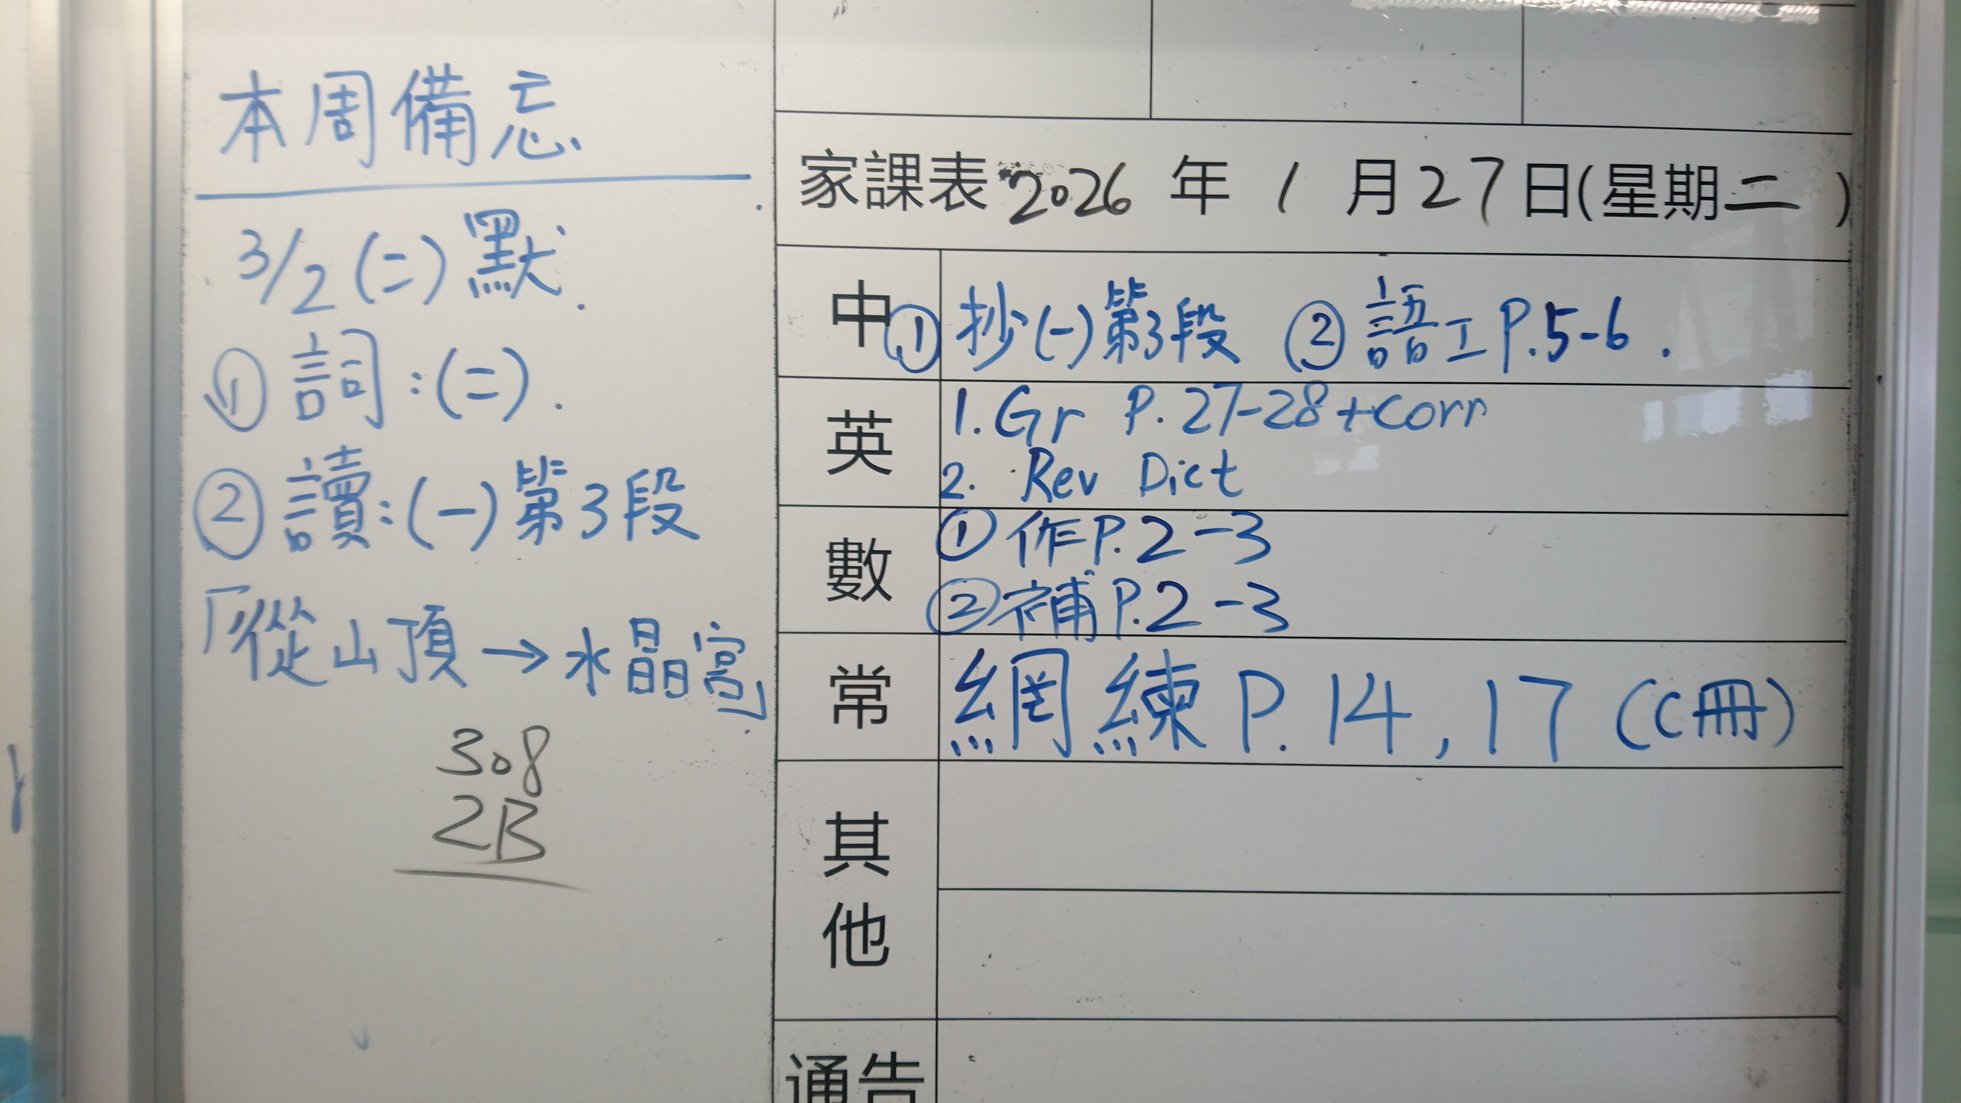 本周備忘
3/2 (二) 默.
① 詞:(二).
② 讀:(一)第3段
「從山頂→水晶宮」
308
2B
家課表 2026 年 1 月 27 日(星期二 )
中 ① 抄(一)第3段 ② 語工 P.5-6.
英 1. Gr P. 27-28 + Corr
2. Rev Dict
數 ① 作 P.2-3
② 補 P.2-3
常 網練 P. 14, 17 (C冊)
其他
通告